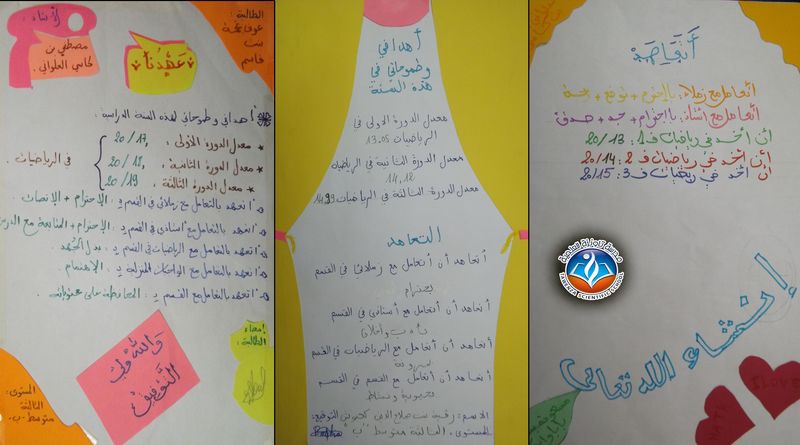 الأستاذ:
مصطفى بن
قاسي العلواني
عَهْدُنَا
الطالبة:
بنت
قاسم
أهدافي وطموحاتي لهذه السنة الدراسية:
معدل الدورة الأولى: 20/17
معدل الدورة الثانية: 20/18
في الرياضيات.
معدل الدورة الثالثة: 20/19
أتعهد بالتعامل مع زملائي في القسم بـ: الإحترام + الإنصات.
أتعهد بالتعامل مع أستاذي في القسم بـ: الإحترام + المتابعة مع الدرس
أتعهد بالتعامل مع الرياضيات في القسم بـ: بذل الجُهد.
أتعهد بالتعامل مع الواجبات المنزلية بـ: الإهتمام.
أتعهد بالتعامل مع القسم بـ: المحافظة على محتوياته.
والله ولي
التوفيق
إمضاء
الطالبة:
المستوى:
الثالثة
متوسط.ب.
أهدافي
وطموحاتي في
هذه السنة
معدل الدورة الأولى في
الرياضيات 13.05
معدل الدورة الثانية في الرياضيات
14,12
معدل الدورة الثالثة في الرياضيات 14,99
التعاهد
أتعاهد أن أتعامل مع زملائي في القسم
بإحترام
أتعاهد أن أتعامل مع أستاذي في القسم
بأدب وأخلاق
أتعاهد أن أتعامل مع الرياضيات في القسم
بمرونة
أتعاهد أن أتعامل مع القسم في القسم
بحيوية ونشاط
الاسم: رقية بنت صلاح الدين التوقيع:
المستوى: الثالثة متوسط "ب"
أتعامل مع زملاء: بالإحترام + تواضع +
أتعامل مع أستاذ: بالإحترام + جد + صدق
أن أخذ في رياضيات ف1: 20/13
أن أخذ في رياضيات ف2: 20/14
أن أخذ في رياضيات ف3: 20/15
TAWENZA SCIENTIFIC SCHOOL
إنشاء الله تعالى